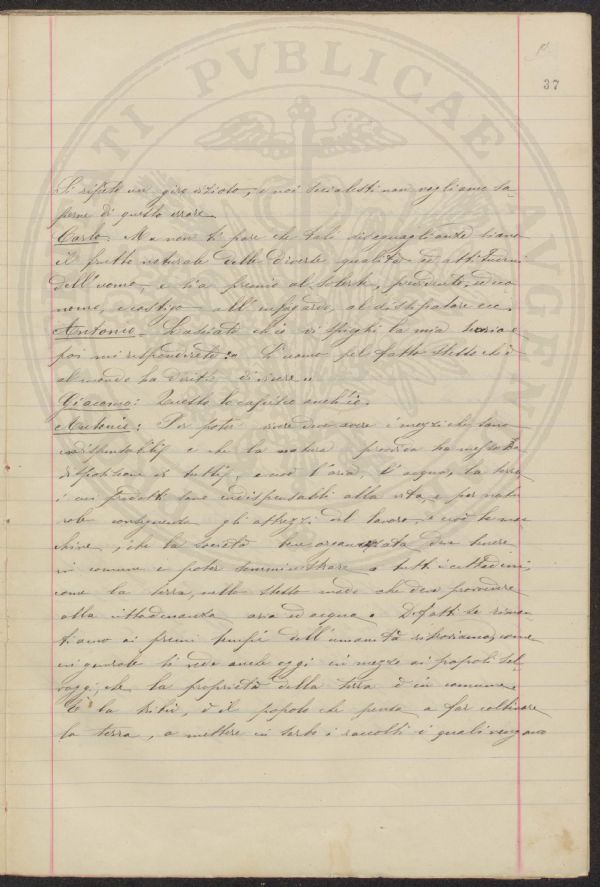 37
Si ripete un giro vizioso, e noi socialisti non vogliamo sa-
perne di questo errore.
Carlo. Ma non ti pare che tali disuguaglianze siano
il frutto naturale delle diverse qualità ed attitudini
dell'uomo, e sia premio al solerte, previdente, ed eco
nomo, e castigo all'infingardo, al dissipatore ecc.
Antonio. Lasciate ch'io vi spieghi la mia teoria e
poi mi risponderete: L'uomo pel fatto stesso che è
al mondo ha diritto di vivere
Giacomo: Questo lo capisco anch'io.
Antonio: Per poter vivere deve avere i mezzi che sono
indispensabili e che la natura provvida ha messo a
disposizione di tutti, e cioè l'aria, l'acqua, la terra
i cui prodotti sono indispensabili alla vita, e per natu
rale conseguenza gli attrezzi del lavoro, e cioè le mac
chine, che la società ben organizzata deve tenere
in comune e poter somministrare a tutti i cittadini,
come la terra, nello stesso modo che deve provvedere
alla cittadinanza aria ed acqua. Difatti se rimon
tiamo ai primi tempi dell'umanità ritroviamo, come
in generale si vede anche oggi in mezzo ai popoli sel
vaggi, che la proprietà della terra è in comune.
È la tribù, è il popolo che pensa a far coltivare
la terra, a mettere in serbo i raccolti i quali vengono
PUBLICAE